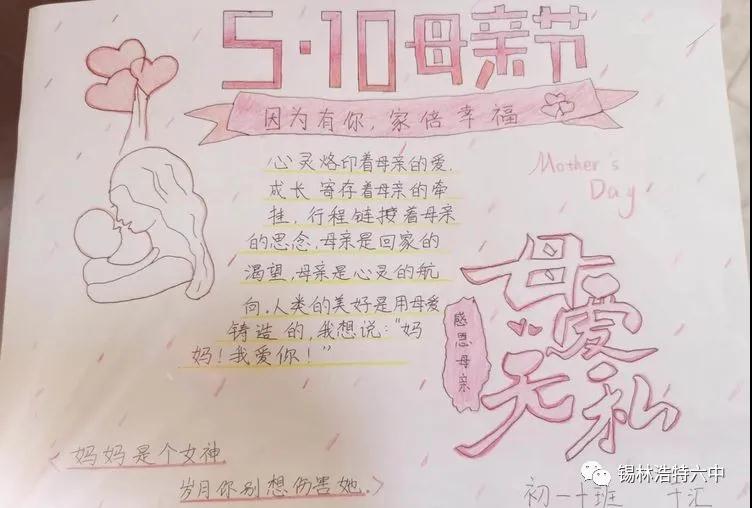 5·10母亲节
因为有你,家倍幸福
心灵烙印着母亲的爱,
成长寄存着母亲的牵
挂,行程链接着母亲
的思念,母亲是回家的
渴望,母亲是心灵的航
向,人类的美好是用母爱
铸造的,我想说:“妈
妈!我爱你!”
Mother's
Day
母爱无私
感恩母亲
<妈妈是个女神
岁月你别想伤害她.>
初一十班
锡林浩特六中